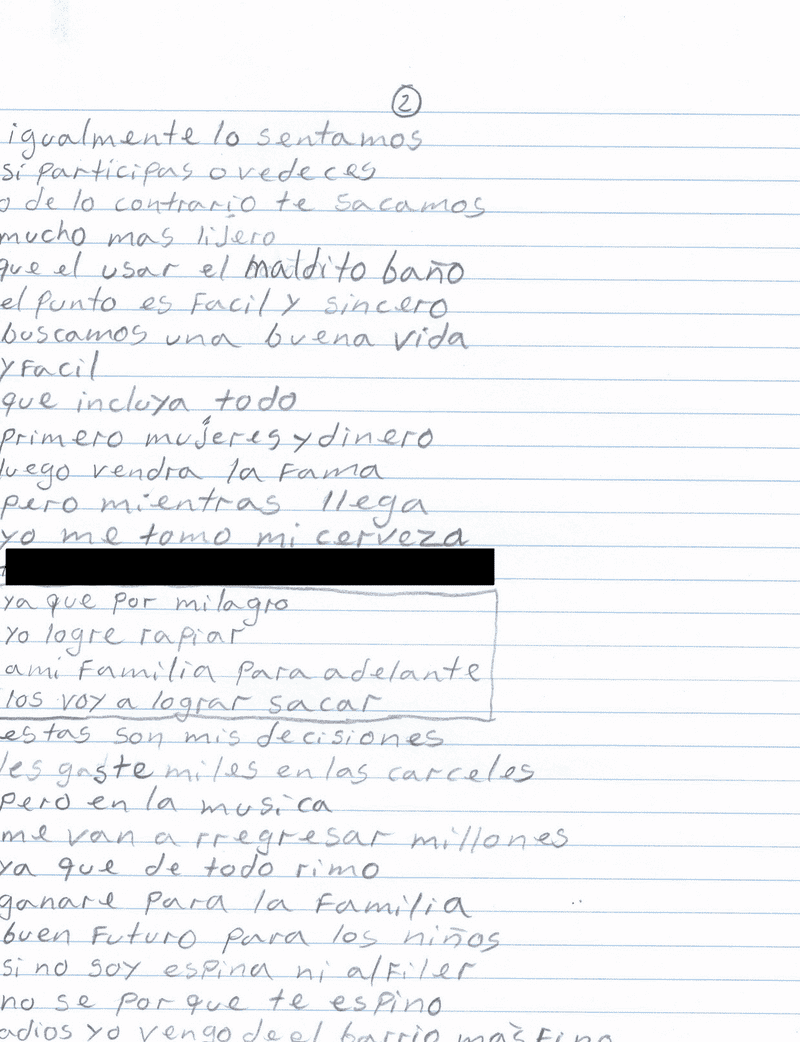 2
igualmente lo sentamos
si participas o vedeces
o de lo contrario te sacamos
mucho mas lijero
que el usar el maldito baño
el punto es Facil y sincero
buscamos una buena vida
y Facil
que incluya todo
primero mujeres y dinero
luego vendra la Fama
pero mientras llega
yo me tomo mi cerveza
ya que por milagro
yo logre rapiar
ami Familia para adelante
los voy a lograr sacar
estas son mis decisiones
les gaste miles en las carceles
pero en la musica
me van a rregresar millones
ya que de todo rimo
ganare para la Familia
buen Futuro para los niños
si no soy espina ni alFiler
no se por que te espino
adios yo vengo de el barrio mas Fino